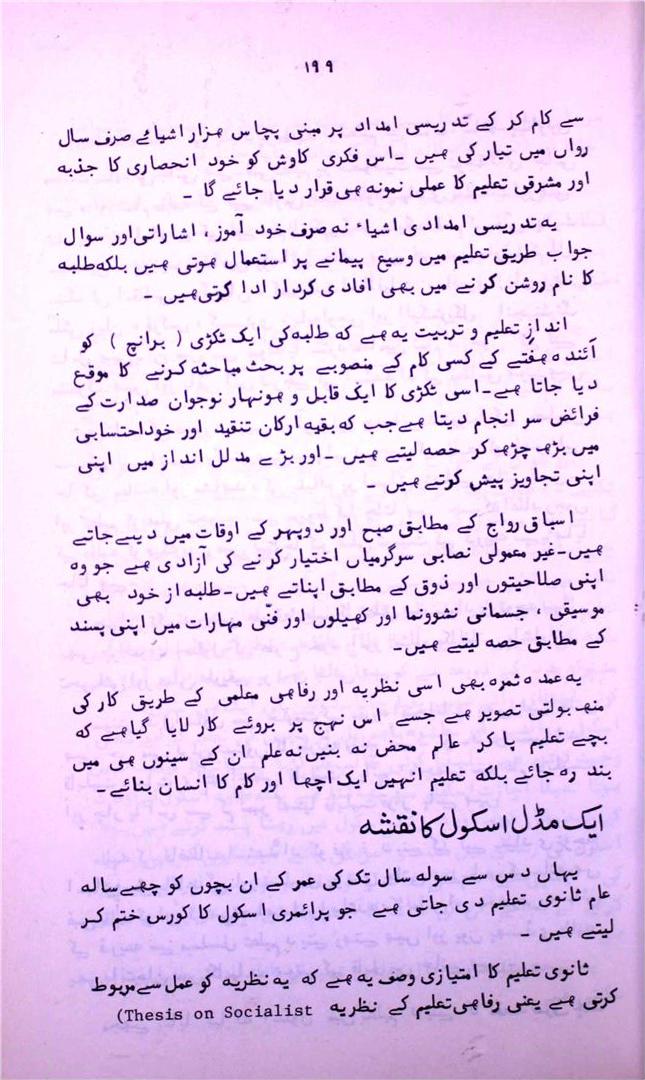 ۱۹۹
سے کام کر کے تدریسی امداد پر مبنی پچاس ہزار اشیائے صرف سال
رواں میں تیار کی ہیں ۔اس فکری کاوش کو خود انحصاری کا جذبہ
اور مشرقی تعلیم کا عملی نمونہ ہی قرار دیا جائے گا ۔
یہ تدریسی امدادی اشیاء نہ صرف خود آموز، اشاراتی اور سوال
جواب طریق تعلیم میں وسیع پیمانے پر استعمال ہوتی ہیں بلکہ طلبہ
کا نام روشن کرنے میں بھی افادی کردار ادا کرتی ہیں ۔
انداز تعلیم و تربیت یہ ہے کہ طلبہ کی ایک ٹکڑی ( برانچ ) کو
آئندہ ہفتے کے کسی کام کے منصوبے پر بحث مباحثہ کرنے کا موقع
دیا جاتا ہے۔اسی ٹکڑی کا ایک قابل و ہونہار نوجوان صدارت کے
فرائض سر انجام دیتا ہے جب کہ بقیہ ارکان تنقید اور خود احتسابی
میں بڑھ چڑھ کر حصہ لیتے ہیں ۔اور بڑے مدلل انداز میں اپنی
اپنی تجاویز پیش کرتے ہیں ۔
اسباق رواج کے مطابق صبح اور دوپہر کے اوقات میں دیے جاتے
ہیں۔غیر معمولی نصابی سرگرمیاں اختیار کرنے کی آزادی ہے جو وہ
اپنی صلاحیتوں اور ذوق کے مطابق اپناتے ہیں۔طلبہ از خود بھی
موسیقی ، جسمانی نشوونما اور کھیلوں اور فنّی مہارات میں اپنی پسند
کے مطابق حصہ لیتے ہیں۔
یہ عمدہ ثمرہ بھی اسی نظریہ اور رفاہی معلمی کے طریق کار کی
منھ بولتی تصویر ہے جسے اس نہج پر بروئے کار لایا گیا ہے کہ
بچے تعلیم پا کر عالم محض نہ بنیں نہ علم ان کے سینوں ہی میں
بند رہ جائے بلکہ تعلیم انہیں ایک اچھا اور کام کا انسان بنائے۔
ایک مڈل اسکول کا نقشہ
یہاں دس سے سولہ سال تک کی عمر کے ان بچوں کو چھے سالہ
عام ثانوی تعلیم دی جاتی ہے جو پرائمری اسکول کا کورس ختم کر
لیتے ہیں ۔
ثانوی تعلیم کا امتیازی وصف یہ ہے کہ یہ نظریہ کو عمل سے مربوط
کرتی ہے یعنی رفاہی تعلیم کے نظریہ (Thesis on Socialist